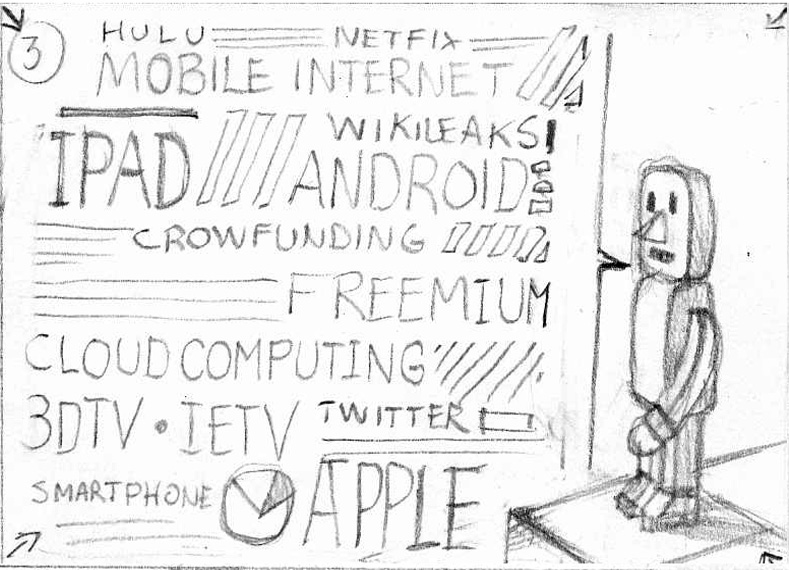 3
HULU NETFIX
MOBILE INTERNET
IPAD
WIKILEAKS
ANDROID
CROWFUNDING
FREEMIUM
CLOUD COMPUTING
3DTV • IETV TWITTER
SMARTPHONE APPLE